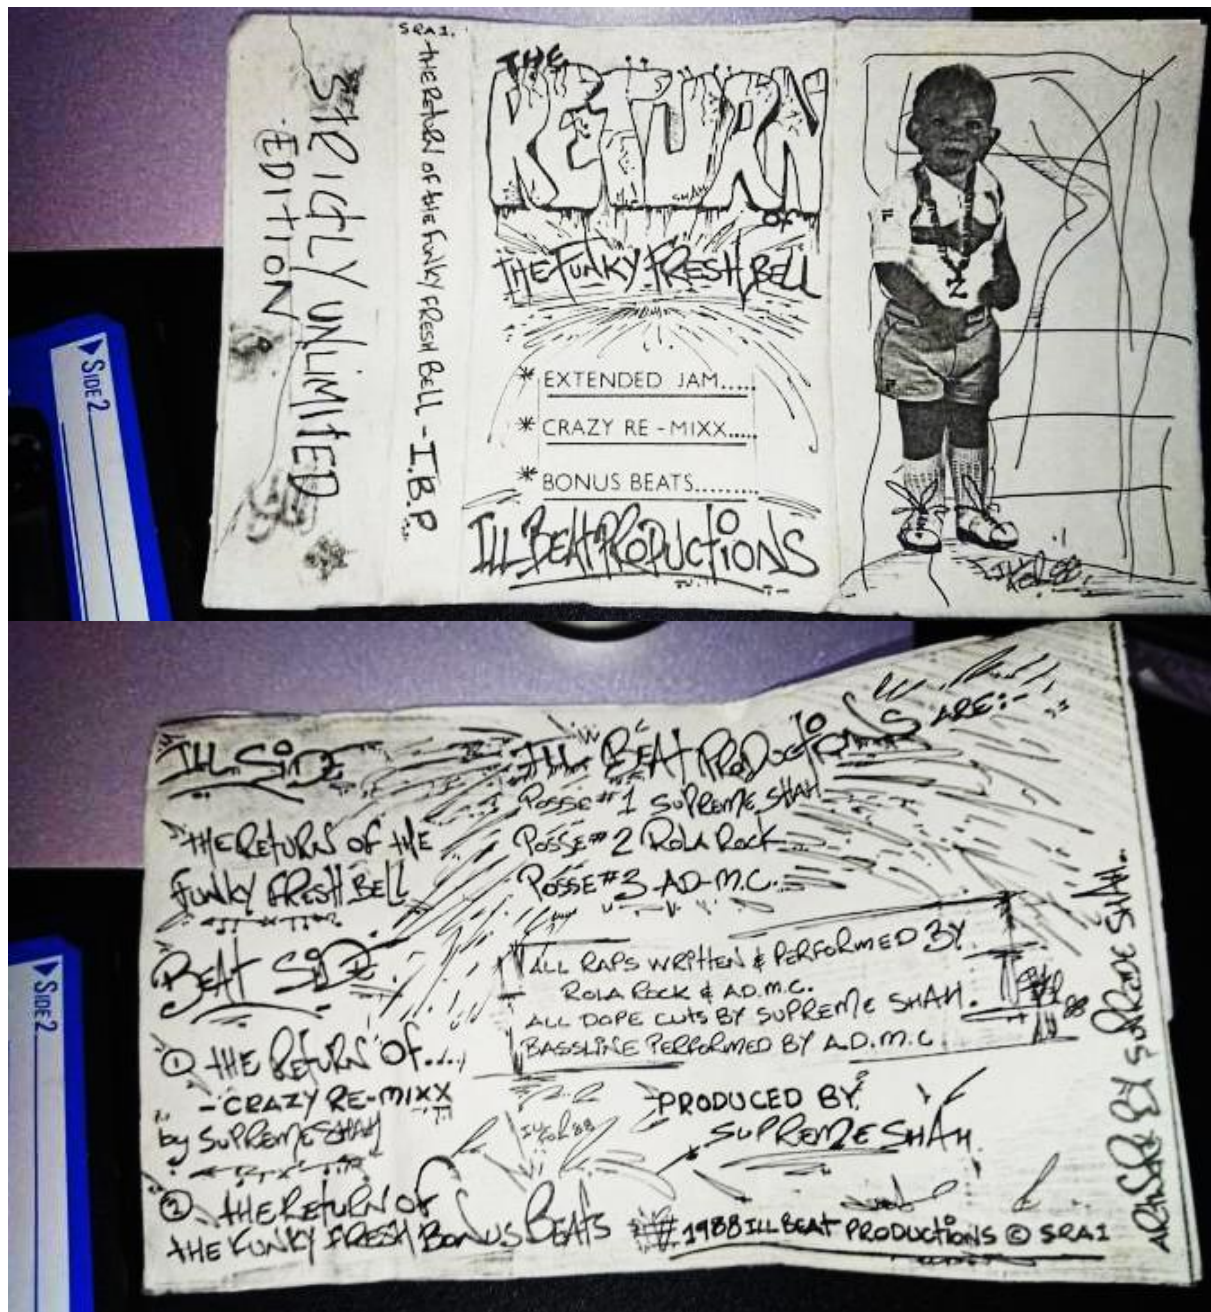 STRICTLY UNLIMITED
EDITION
SRA1.
THE RETURN OF THE FUNKY FRESH BELL - I.B.P.
THE
RETURN
SHAH
OF
THE FUNKY FRESH BELL
* EXTENDED JAM.....
* CRAZY RE-MIXX.....
* BONUS BEATS........
ILL BEAT PRODUCTIONS
SIDE 2
ILL SIDE
THE RETURN OF THE
FUNKY FRESH BELL
BEAT SIDE
① THE RETURN OF....
- CRAZY RE-MIXX
by SUPREME SHAH
② THE RETURN OF
THE FUNKY FRESH BONUS BEATS
ILL BEAT PRODUCTIONS ARE:-
POSSE #1 SUPREME SHAH
POSSE #2 ROLA ROCK
POSSE #3 AD-M.C.
ALL RAPS WRITTEN & PERFORMED BY
ROLA ROCK & A.D.M.C.
ALL DOPE CUTS BY SUPREME SHAH.
BASSLINE PERFORMED BY A.D.M.C.
PRODUCED BY
SUPREME SHAH
1988 ILL BEAT PRODUCTIONS © SRA1
ARTWORK BY SUPREME SHAH..
SIDE 2